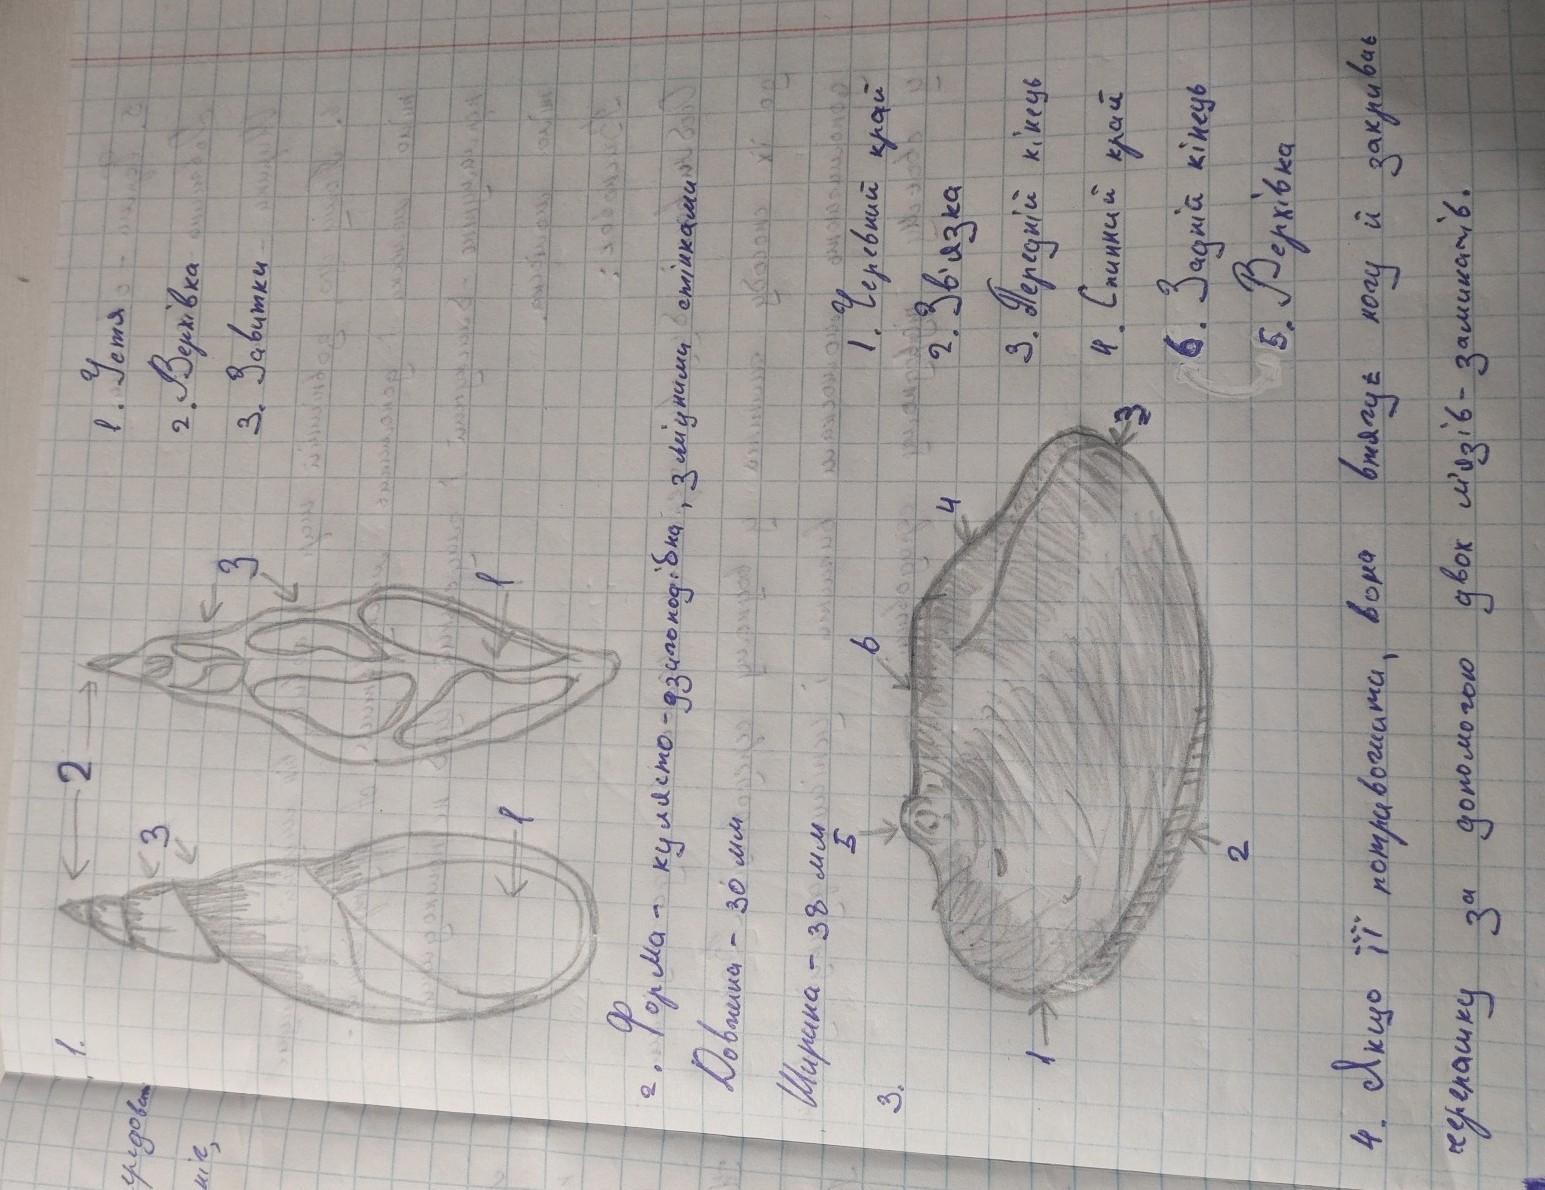 1.
2
3
3
1
1
1. Устя
2. Верхівка
3. Завитки
2. Форма - кулясто-дзигоподібна, зміцними стінками
Довжина - 30 мм
Ширина - 38 мм
3.
5
6
4
3
1
2
1. Черевний край
2. Зв'язка
3. Передній кінець
4. Спинний край
6. Задній кінець
5. Верхівка
4. Якщо її потривожити, вона втягує ногу й закриває
черепашку за допомогою двох м'язів-замикачів.